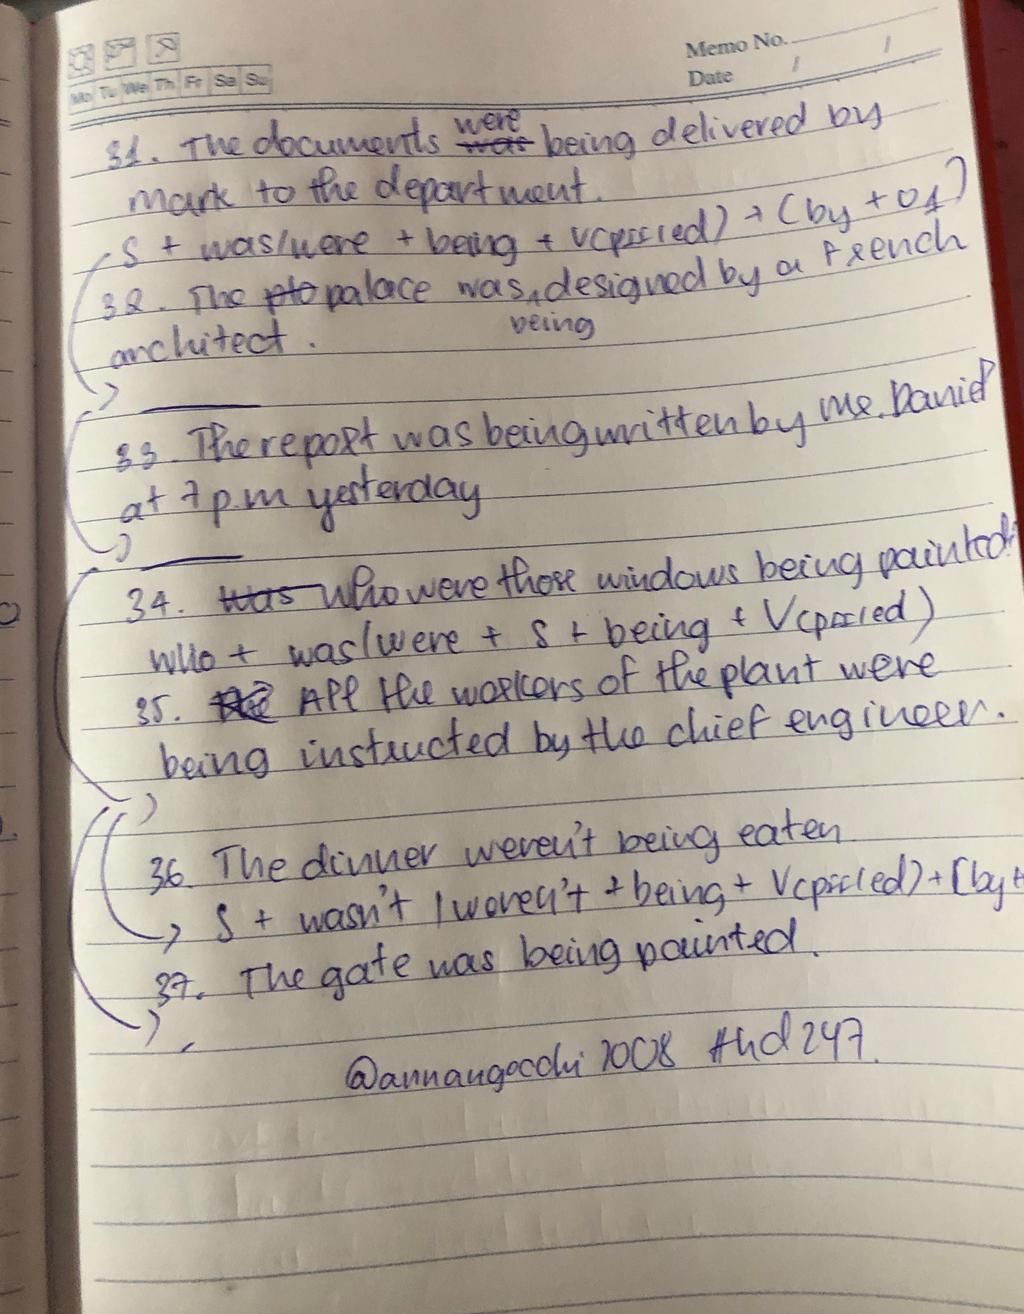 Memo No.
Mo Tu We Th Fr Sa Su
Date / /
31. The documents were was being delivered by
Mark to the department.
S + was/were + being + V(pii/ed) + (by + O1)
32. The palace was designed by a French
being
architect.
33. The report was being written by Mr. Daniel
at 7 p.m yesterday
34. Was Who were those windows being painted
Who + was/were + S + being + V(pii/ed)
35. All the workers of the plant were
being instructed by the chief engineer.
36. The dinner weren't being eaten
S + wasn't / weren't + being + V(pii/ed) + (by +
37. The gate was being painted.
@annangocchi1008 #hd247.